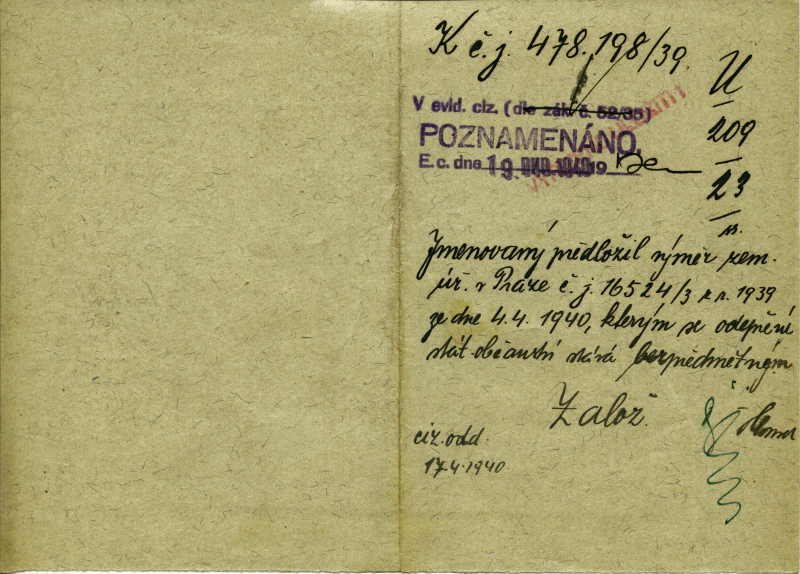 K č. j. 478.198/39.
U
209
23
V evid. ciz. (dle zák. č. 52/35)
POZNAMENÁNO.
E. c. dne 19. DUB. 1940 19
Jmenovaný předložil výměr zem.
úř. v Praze č. j. 16524/3 z r. 1939
ze dne 4.4. 1940, kterým se odepření
stát. občanství stává bezpředmětným
Založ.
ciz. odd.
17.4.1940